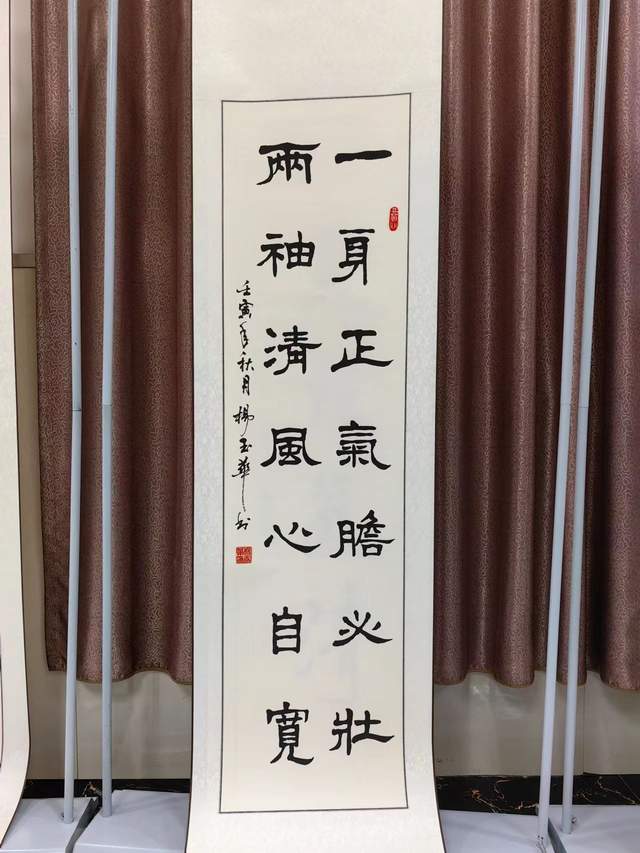 一身正氣膽必壯
兩袖清風心自寬
壬寅年秋月楊玉華书